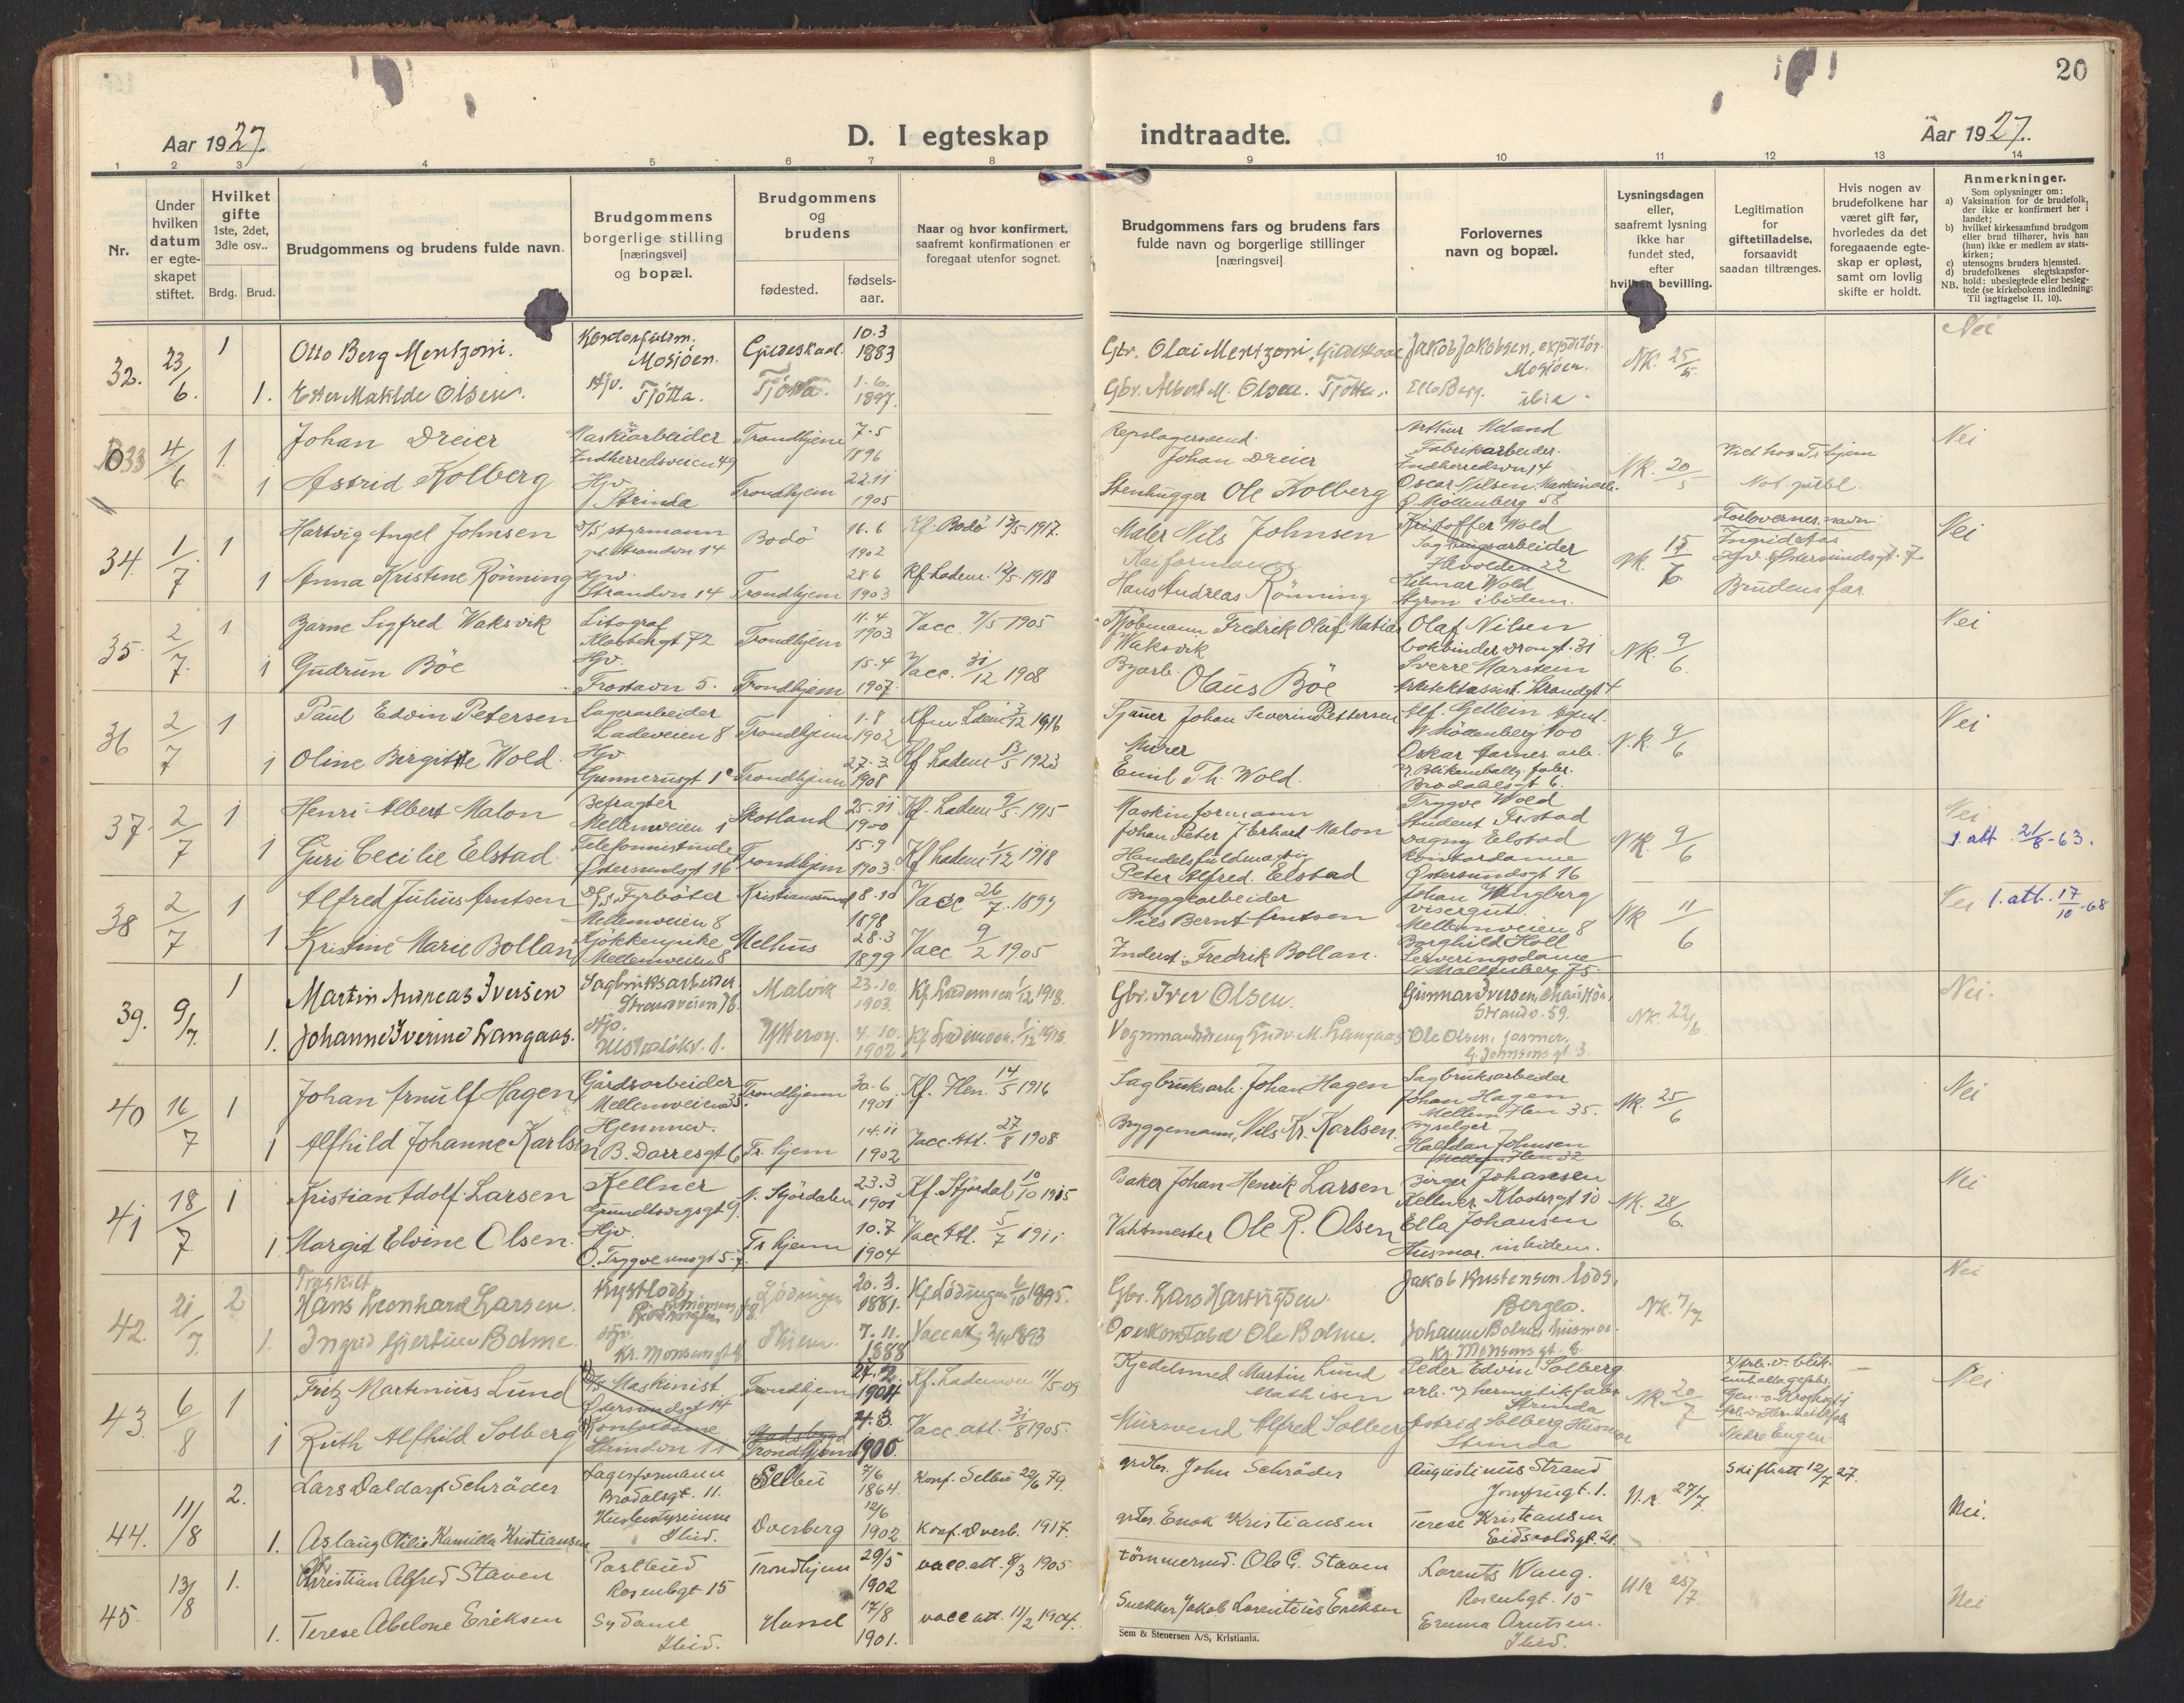 20
Aar 1927.
D. I egteskap
indtraadte.
Aar 1927.
1 2 3 4 5 6 7 8 9 10 11 12 13 14
Nr.
Under hvilken datum er egteskapet stiftet.
Hvilket gifte 1ste, 2det, 3dle osv..
Brdg. Brud.
Brudgommens og brudens fulde navn.
Brudgommens borgerlige stilling [næringsvei] og bopæl.
Brudgommens og brudens
fødested.
fødsels-aar.
Naar og hvor konfirmert, saafremt konfirmationen er foregaat utenfor sognet.
Brudgommens fars og brudens fars fulde navn og borgerlige stillinger [næringsvei]
Forlovernes navn og bopæl.
Lysningsdagen eller, saafremt lysning ikke har fundet sted, efter hvilken bevilling.
Legitimation for giftetilladelse, forsaavidt saadan tiltrænges.
Hvis nogen av brudefolkene har været gift før, hvorledes da det foregaaende egteskap er opløst, samt om lovlig skifte er holdt.
Anmerkninger.
Som oplysninger om:
a) Vaksination for de brudefolk, der ikke er konfirmert her i landet;
b) hvilket kirkesamfund brudgom eller brud tilhører, hvis han (hun) ikke er medlem av statskirken;
c) utensogns bruders hjemsted.
d) brudefolkenes slegtskapsforhold: ubeslegtede eller beslegtede (se kirkebokens indledning:
NB. Til iagttagelse II. 10).
32. 23/6. 1 Otto Berg Mentzoni. Mosjöen. Gildeskaal. 10.3 1883 Gbr. Olai Mentzoni, Gildeskaal Jakob Jakobsen, Mosjöen. NK. 25/5 Nei
1. Ester Matilde Olsen. Hjv. Tjötta. Tjötta. 1.6. 1897. Gbr. Albert M. Olsen. Tjötta. Berg. ibid.
33 4/6 1. Johan Dreier Maskinarbeider Indherredsveien 49 Trondhjem 7-5 1896 Johan Dreier Arthur Fabrikarbeider. Indherredsvn 14 NK. 20/5 Nei
1 Astrid Kolberg Hjv Strinda Trondhjem 22.11 1905 Stenhugger Ole Kolberg Oscar Nilsen. Maskinarb. Ø. Möllenberg 58
34. 1/7 1 Hartvig Angel Johnsen D/S styrmann Strandvn 14 Bodö 16.6 1902 Kf. Bodö 13/5-1917. Maler Nils Johnsen Kristoffer Wold NK. Forlovernes navn Ingrid Aas Nei
1 Anna Kristine Rönning Hjv. Strandvn 14 Trondhjem 28.6 1903 Kf. Ladem. 12/5-1918 Hans Andreas Rönning Hilmar Wold Styrm ibidem. Brudens far
35. 2/7. 1 Bjarne Sigfred Waksvik Litograf Klostergt 72 Trondhjem 11.4 1903 Vacc. 9/5 1905 Kjöbmann Fredrik Oluf Matias Waksvik Olaf Nilsen bokbinder NK. 9/6. Nei
1 Gudrun Böe Hjv. Frostavn 5. Trondhjem 15.4 1907. Vacc. 31/12 1908 Byarb. Olaus Böe Sverre Marstein Strandgt
36 2/7 1 Paul Edvin Petersen Lagerarbeider Ladeveien 8 Trondhjem 1.8 1902 3/12 1916 Sjauer Johan Severin Pettersen Alf. Gellein Möllenberg 100 N.K. 9/6 Nei
1 Oline Birgitte Wold. Hjv Gunnerusgt 1 c Trondhjem 27.3. 1908 Kf Ladem 13/5 1923 Murer Emil Th. Wold. Oskar Farnes arb.
37. 2/7 1 Henri Albert Malon Befragter Mellemveien 1 Skotland 25-11 1900 Kf. Ladem 9/5-1915 Maskinformann Johan Peter Malon Trygve Wold Student NK. 9/6 Nei
1 Guri Cecilie Elstad. Telefonnistinde Östersundsgt 16 Trondhjem 15-9 1903. Kf Ladem 1/12 1918 Handelsfuldmægtig Peter Alfred Elstad Dagny Elstad Kontordame Östersundsgt 16 1. att. 21/8-63.
38 2/7 1 Alfred Julius Arntsen D/S Fyrböter Mellemveien 8 Kristiansund 8-10 1898 Vacc 26/7.1899 Bryggearbeider Nils Bernt Arntsen Johan Wingberg visergut. Mellemveien 8 NK 11/6 Nei 1. att. 17/10-68
1 Kristine Marie Bollan Kjökkenpike Mellemveien 8 Melhus 28.3 1899 Vacc 9/2 1905 Inderst. Fredrik Bollan. Borghild Holl Möllenberg 75.
39. 9/7. 1 Martin Andreas Iversen Sagbruksarbeider Strandveien 78. Malvik 23.10. 1903. Kf. Lademoen 1/12 1918. Gbr. Iver Olsen. Gunnar Iversen, Strandv. 59. NK. 22/6. Nei.
1. Johanne Iverine Langaas. Hjv. Ytteröy. 4.10. 1902. Kf. Lademoen. Langaas Ole Olsen, G. Johnsens gt. 3.
40 16/7 1 Johan Arnulf Hagen Gårdsarbeider Mellemveien 35. Trondhjem 30-6 1901 Kf. Ilen. 14/5 1916 Sagbruksarb. Johan Hagen Sagbruksarbeider Johan Hagen Mellem Ilen 35. NK. 25/6 Nei
1 Alfhild Johanne Karlsen Hjemmev. B. Dorresgt 6 Tr. hjem 14.11 1902 Vacc. Att. 27/8 1908 Bryggemann, Nils Kr. Karlsen. Byselger Halfdan Johnsen
41 18/7 1 Kristian Adolf Larsen Kellner Grundtvigsgt 9. Stjördalen 23.3 1901 Kf. Stjørdal 10/10 1915 Baker Johan Henrik Larsen Birger Johansen Kellner. Klostergt 10 NK. 28/6. Nei
1. Margit Elvine Olsen. Hjv. O. Trygvesønsgt 5. Tr hjem 10.7 1904 Vacc Att. 5/7 1911 Vaktmester Ole R. Olsen Ella Johansen Husmor. ibidem.
42. 21/7. 2 Fraskilt Hans Leonhard Larsen Kystlods, Lödingen 20.3. 1881. Kf. Lödingen 6/10 1895. Gbr. Lars Hartvigsen. Jakob Kristensen. lods, Bergen. NK. 7/7. Nei
1. Ingrid Gjertine Bolme. Hjv. Kr. Monsensgt Thjem. 7.11. 1888 1893 Overkonstabel Ole Bolme. Johanne Bolme, husmor. Kr. Monsens gt. 6.
43. 6/8 1 Fritz Martinius Lund D/S Maskinist Östersundsgt 14 Trondhjem 27.2 1904 Kf. Lademoen Kjedelsmed Martin Lund Mathisen Peder Edvin Solberg arb. hermetikfabr Strinda NK. 20/7 Nei
1 Ruth Alfhild Solberg Kontordame Strindvn 11 Trondhjem 4.3. 1905 Vacc. att. 31/8 1905. Mursvend Alfred Solberg Astrid Solberg Husmor Strinda
44. 11/8 2. Lars Daldorf Schröder Lagerformann Brodalsgt. 11. Selbu 7/6 1864. Konf. Selbu 22/6 79. grdbr. John Schröder Augustinus Strand Jomfrugt. 1. N.k. 27/7 Skifteatt 12/7 27. Nei.
1. Aslaug Otilie Kamilla Kristiansen Husbestyrerinne Ibid. Överberg 12/6 1902. Konf. Överb. 1917. Enok Kristiansen Terese Kristiansen Eidsvoldsgt. 21.
45. 13/8 1. Christian Alfred Staven Postbud Rosenbgt 15 Trondhjem 29/5 1902 vacc. att. 8/3 1905 tömmermd. Ole G. Staven Lorents Waag. Rosenbgt. 15 N.k 25/7. Nei
1. Terese Abelone Eriksen Sydame Ibid. Hassel 17/8 1901. vacc att. 11/2 1904. Snekker Jakob Lorentius Eriksen Emma Arntsen. Ibid.
Sem & Stenersen A/S, Kristiania.